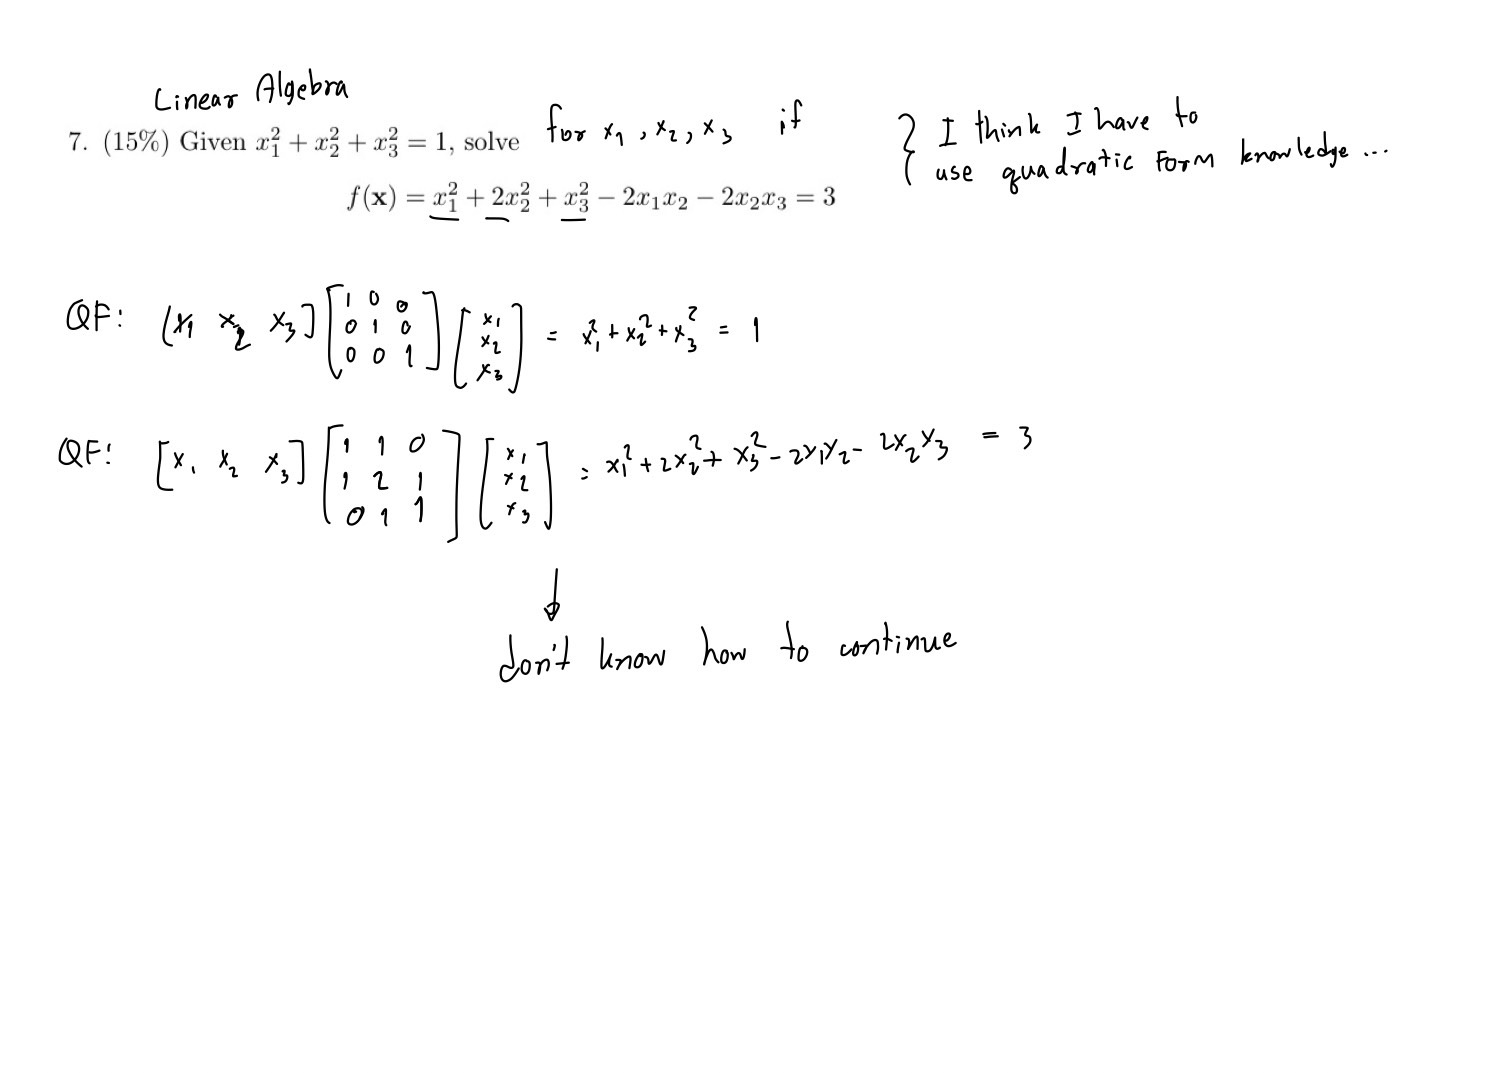 Linear Algebra
7. (15%) Given x₁² + x₂² + x₃² = 1, solve for x₁, x₂, x₃ if
f(x) = x₁² + 2x₂² + x₃² − 2x₁x₂ − 2x₂x₃ = 3
} I think I have to
use quadratic form knowledge ...
QF: [x₁ x₂ x₃] [1 0 0; 0 1 0; 0 0 1] [x₁; x₂; x₃] = x₁² + x₂² + x₃² = 1
QF: [x₁ x₂ x₃] [1 1 0; 1 2 1; 0 1 1] [x₁; x₂; x₃] = x₁² + 2x₂² + x₃² - 2x₁x₂ - 2x₂x₃ = 3
↓
don't know how to continue